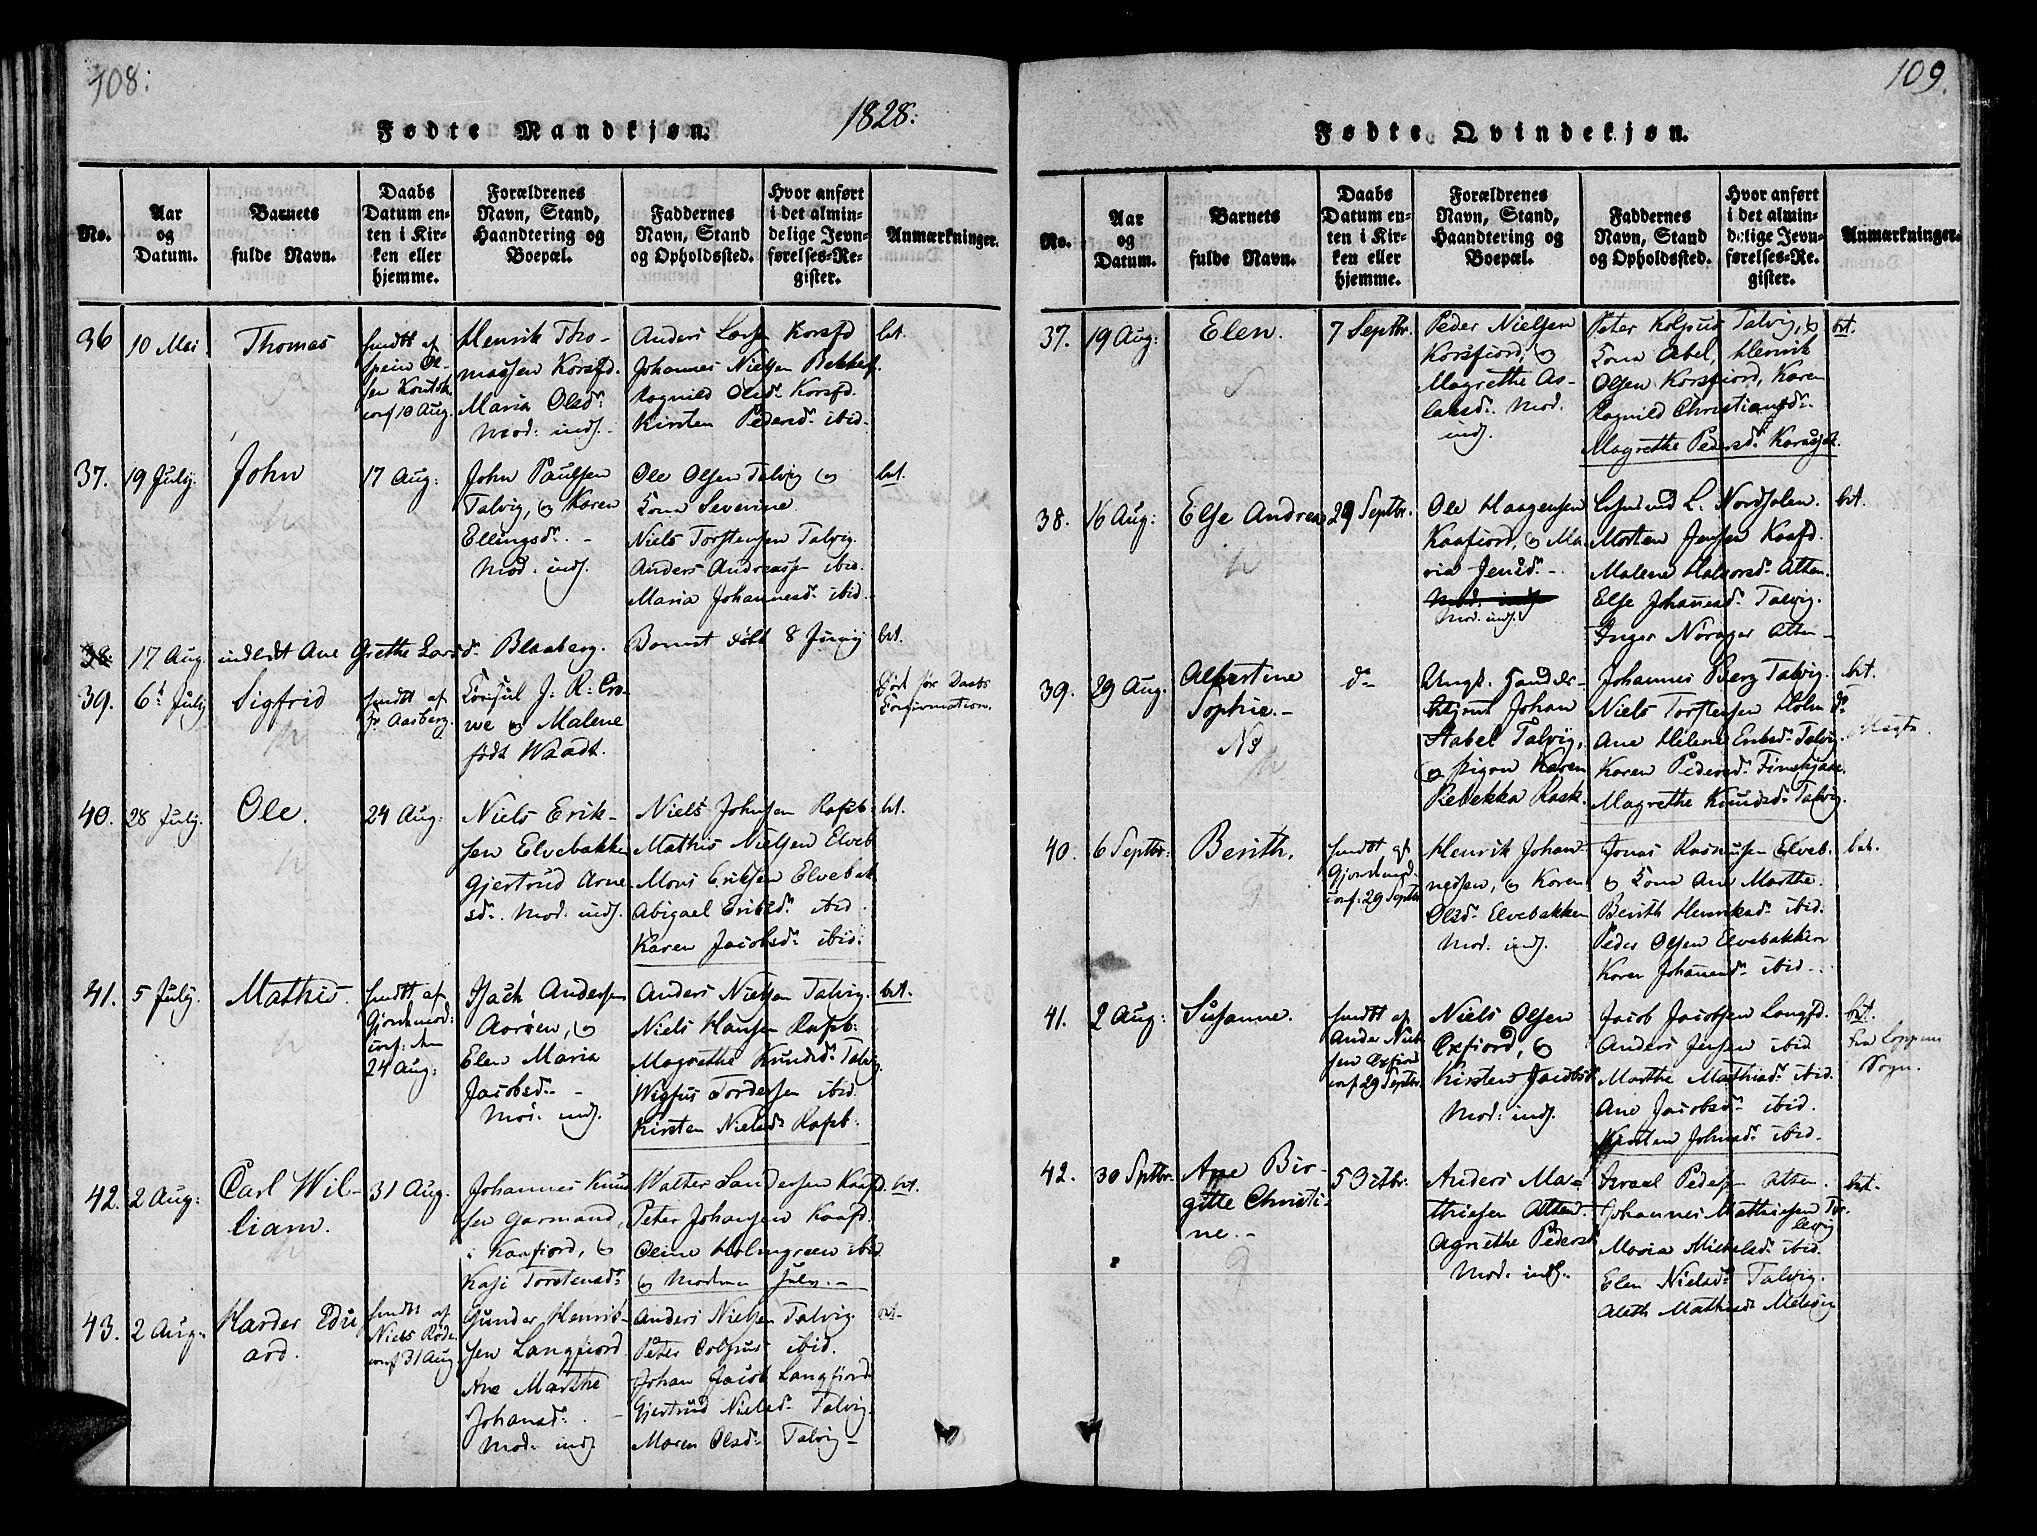 108:
1828:
Fødte Mandkjøn.
No.
Aar
og
Datum.
Barnets
fulde Navn.
Daabs
Datum en-
ten i Kir-
ken eller
hjemme.
Forældrenes
Navn, Stand,
Haandtering og
Boepæl.
Faddernes
Navn, Stand
og Opholdssted.
Hvor anført
i det almin-
delige Jevn-
førelses-Re-
gister.
Anmærkninger.
36
10 Mai
Thomas
hmdt af
Ol-
sen
conf 10 Aug.
Henrik Tho-
massen Korsfd.
Maria Olsdr.
Mod: indf.
Anders Larsen Korsfd
Johannes Nielsen Bekkef.
Ragnild Olsdr. Korsfd.
Kirsten Pedersdr. ibid.
bet.
37.
19 July.
John
17 Aug:
John Paulsen
Talvig, og Karen
Ellingsdr. -
Mod. indf.
Ole Olsen Talvig og
Kona Severine
Niels Torstensen Talvig.
Anders Andreass. ibid.
Maria Johannesdr. ibid.
bet.
38.
17 Aug. indledt Ane Grethe Larsdr. Blaaberg. Barnet født 8 Juny
bet.
39.
6t July
Sigfrid
hmdt af
Aasberg.
Consul J: R: Cro-
we og Malene
født Waadt.
Død før Daabs
Confirmation.
40.
28 July.
Ole.
24 Aug:
Niels Erik-
sen Elvebakke
Gjertrud Arne-
sdr. Mod. indf.
Niels Johnsen Rafsb:
Mathis Nielsen Elveb
Mons Eriksen Elvebak.
Abigael Eriksdr. ibid.
Karen Jacobsdr. ibid.
bet.
41.
5 July.
Mathis.
hmdt af
Gjordemod:
conf: den
24 Aug:
Isach Andersen
Aarøen, og
Elen Maria
Jacobsdr. -
Mod. indf.
Anders Nielsen Talvig.
Niels Hansen Rafsb:
Magrethe Knudsdr. Talvig.
Wigfus Tordersen ibid.
Kirsten Nielsdr. Rafsb.
bet.
42.
2 Aug:
Carl Wil-
liam.
31 Aug.
Johannes Knud
sen Garmand,
i Kaafjord, og
Kasi Torstensdr.
Walter Sandersen Kaafd.
Peter Johansen Kaafd.
Oline Holmgreen ibid
og Modren July. -
bet.
43.
2 Aug:
Harder Edu
ard.
hmdt af
Niels Røde
conf 31 Aug
Gunder Henrik-
sen Langfiord
Ane Marthe
Johansdr. -
Mod: indf
Anders Nielsen Talvig.
Peter Colpus ibid.
Johan Jacob Langfiord
Gjertrud Nielsdr. Talvig.
Maren Olsdr. Talvig -
bet.
109.
Fødte Qvindekjøn.
No.
Aar
og
Datum.
Barnets
fulde Navn.
Daabs
Datum en-
ten i Kir-
ken eller
hjemme.
Forældrenes
Navn, Stand,
Haandtering og
Boepæl.
Faddernes
Navn, Stand
og Opholdssted.
Hvor anført
i det almin-
delige Jevn-
førelses-Re-
gister.
Anmærkninger.
37.
19 Aug:
Elen.
7 Septbr.
Peder Nielsen
Korsfiord, og
Magrethe As-
laksdr. Mod.
indf.
Peter Kolpus Talvig, og
Kona Abel, Henrik
Olsen Korsfiord, Karen
Ragnild Christiansdr.
Magrethe Pedersdr. Korsfd.
bet.
38.
16 Aug:
Else Andrea
29 Septbr.
Ole Haagensen
Kaafiord, og Ma-
ria Jensdr. -
Mod. indf.
L. Nordholen.
Morten Jensen Kaafd.
Malene Halvorsdr. Alten.
Else Johansdr. Talvig.
Inger Norager Alten -
bet.
39.
29 Aug.
Albertine
Sophie. -
N3
do
Ungk. Handels-
betjent Johan
Aabel Talvig,
og pigen Karen
Rebekka Rask.
Johannes Berg Talvig.
Niels Torstensen Holm
Ane Helene Eriksdr. Talvig.
Karen Pedersdr.
Magrethe Knudsdr. Talvig.
bet.
do
40.
6 Septbr.
Berith.
hmdt af
Gjordemod.
conf: 29 Septbr
Henrik Johan-
nesen, og Karen
Olsdr. Elvebakken
Mod. indf.
Jonas Rasmusen Elveb.
og Kona Ane Marthe.
Berith Henriksdr. ibid.
Peder Olsen Elvebakken
Karen Johansdr. ibid. -
bet.
41.
2 Aug:
Susanne.
hmdt af
Anders Niel-
sen Oxfiord
conf 29 Septbr.
Niels Olsen
Oxfiord, og
Kirsten Jacobsdr.
Mod: indf.
Jacob Jacobsen Langfd.
Anders Jensen ibid
Marthe Mathiasdr. ibid.
Ane Jacobsdr. ibid.
Kirsten Johnsdr. ibid.
bet.
Fra Loppens
Sogn.
42.
30 Septbr.
Ane Bir-
gitte Christi-
ne. -
5 Octbr.
Anders Ma-
thiesen Alten.
Agnethe Pedersdr.
Mod. indf.
Israel Peders. Alten.
Johannes Mathiesen Tal-
vig
Maria Michelsdr. ibid.
Elen Nielsdr. Talvig.
Aleth Mathisdr.
bet.